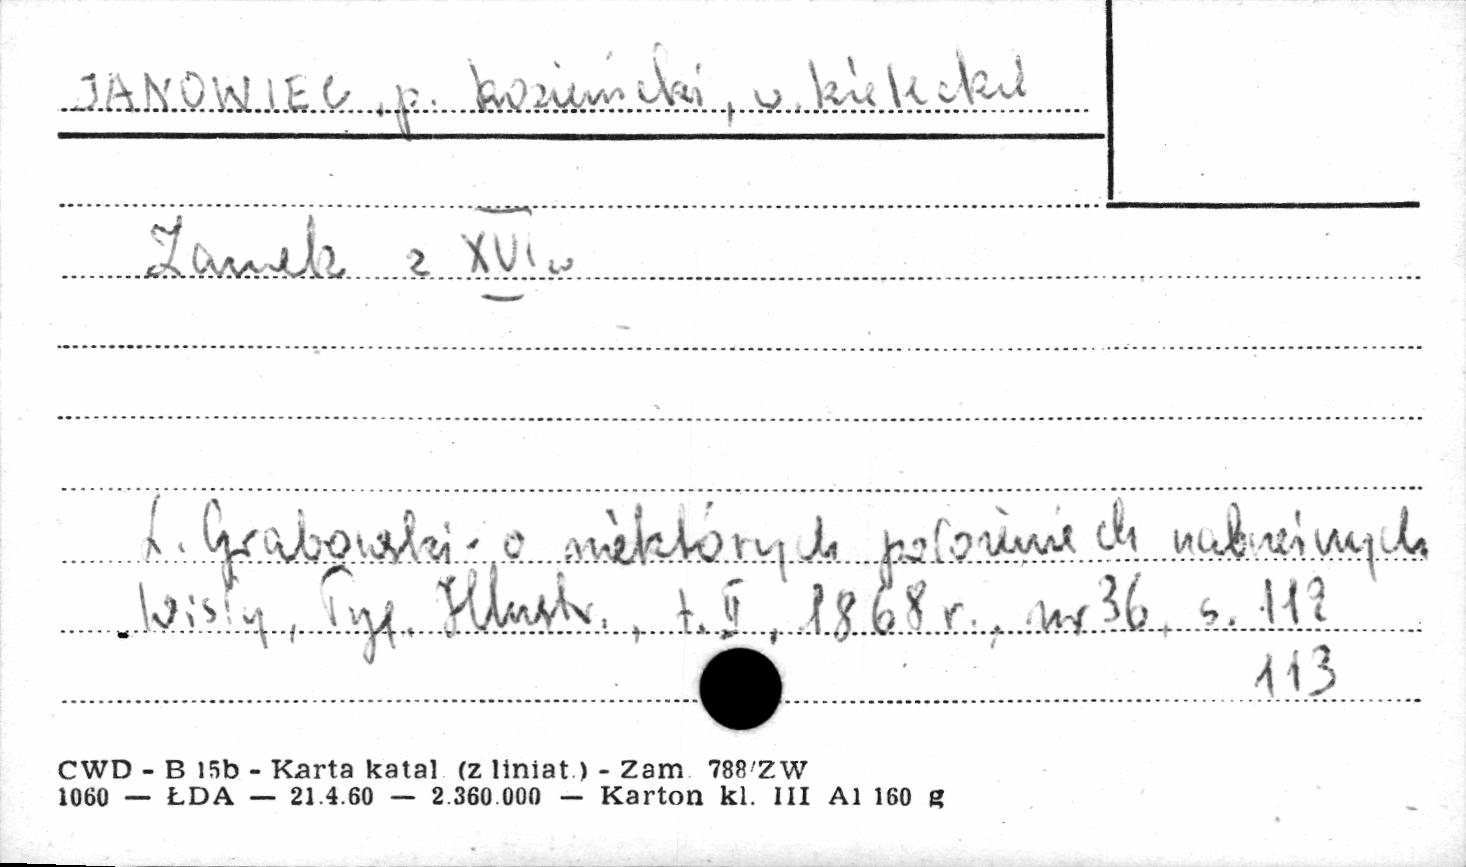 JANOWIEC, p. kozienicki, w. kieleckie
Zamek z XVI w
L. Grabowski - o niektórych położeniach nabrzeżnych
Wisły, Tyg. Illustr., t. II, 1868 r., nr 36, s. 112
113
CWD - B 15b - Karta katal. (z liniat.) - Zam. 788/ZW
1060 — ŁDA — 21.4.60 — 2.360.000 — Karton kl. III A1 160 g